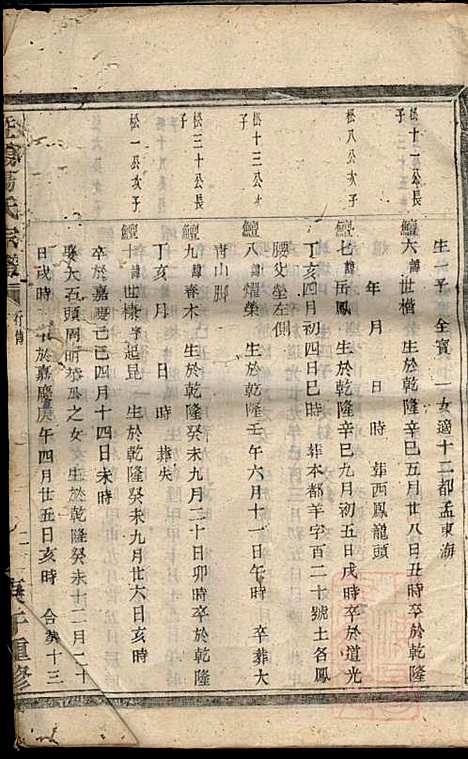 生一子 全寳 一女適十二都孟東海
松十一公長子
鱣六諱世楷 生於乾隆辛巳五月廿八日丑時卒於乾隆
年 月 日 時 葬西鳳龍頭
松八公次子
鱣七諱岳鳳 生於乾隆辛巳九月初五日戌時卒於道光
丁亥四月初四日巳時 葬本都羊字百二十號土名鳳
腰父塋左側
松十三公次子
鱣八諱燿榮 生於乾隆壬午六月十一日午時 卒葬大
青山脚
松三十公長子
鱣九諱春木 生於乾隆癸未九月三十日卯時卒於乾隆
丁亥 月 日 時 葬失
松一公次子
鱣十諱世棣字起昆 生於乾隆癸未九月廿六日亥時
卒於嘉慶己巳四月十四日未時
娶大五頭周明恭公之女 生於乾隆癸未十二月二十
日戌時 卒於嘉慶庚午四月廿五日亥時 合葬十三
氏宗譜
行傳
二
庚子重修